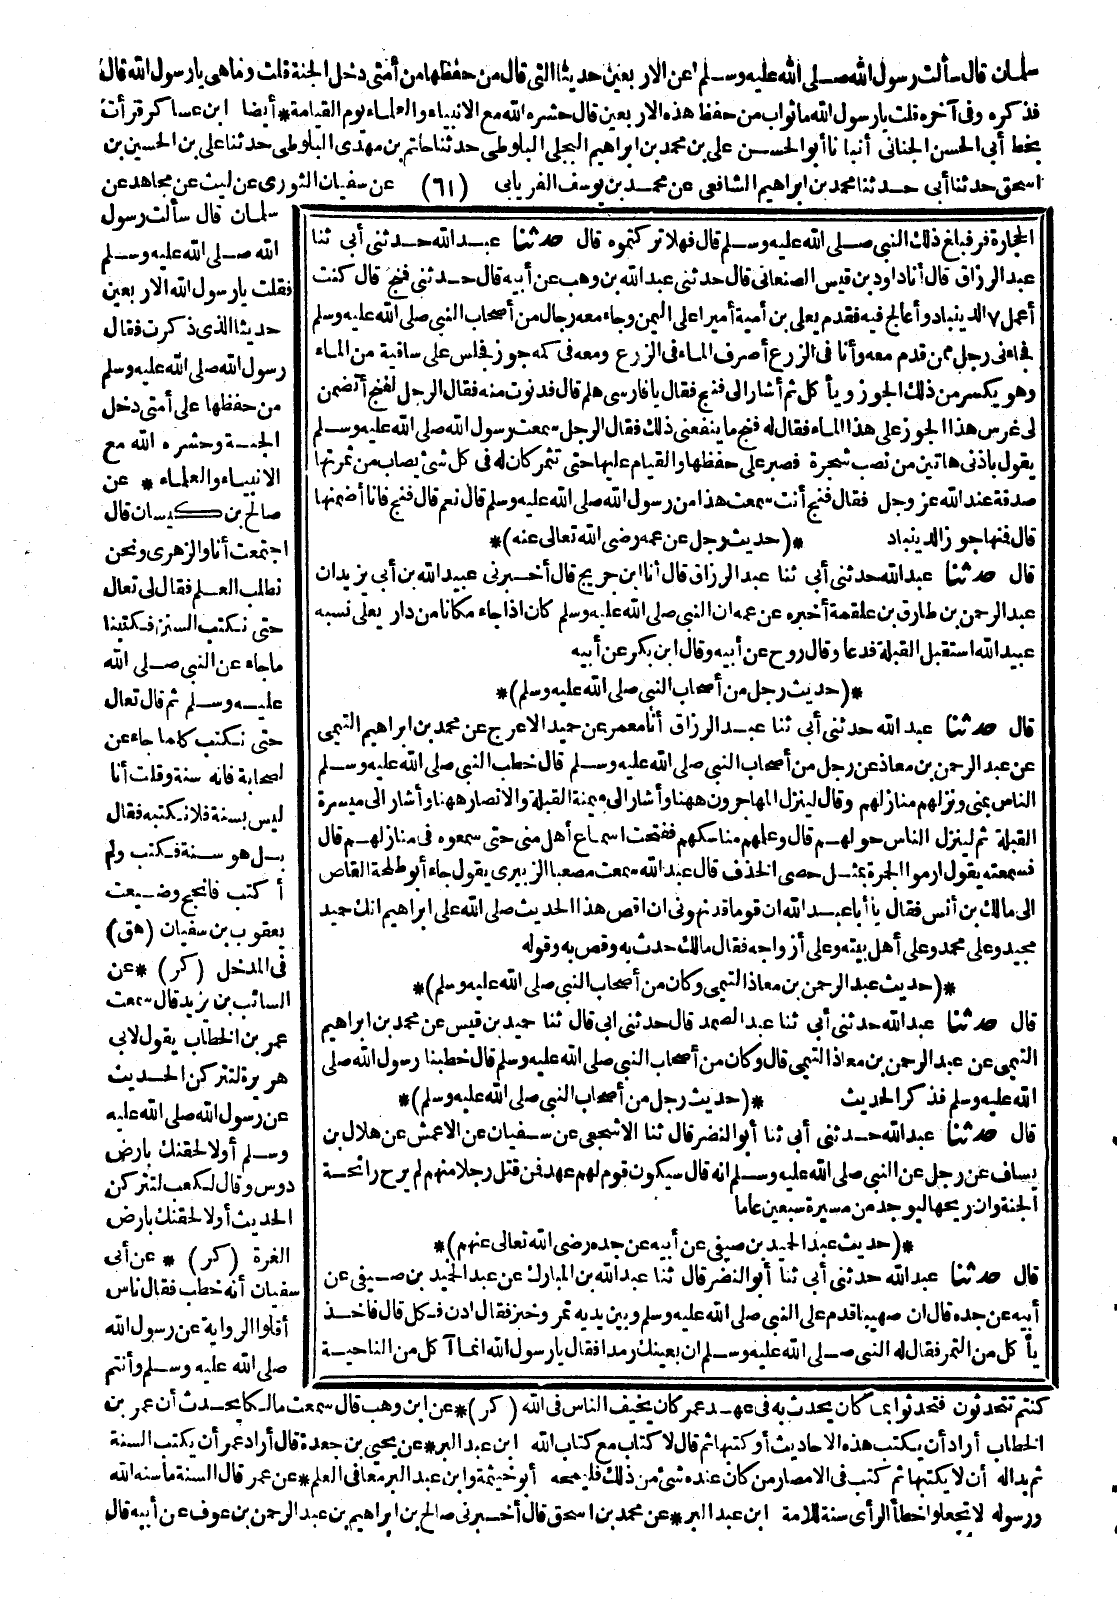 سلمان قال سألت رسول الله صلى الله عليه وسلم عن الاربعين حديثا التي قال من حفظها من أمتي دخل الجنة قلت وما هي يا رسول الله قال
فذكره وفي آخره قلت يا رسول الله ما ثواب من حفظ هذه الاربعين قال حشره الله مع الانبياء والعلماء يوم القيامة * أيضا ابن عساكر قرأت
بخط أبي الحسن الجنائي أنبأنا أبو الحسن علي بن محمد بن ابراهيم البجلي البلوطي حدثنا حاتم بن مهدي البلوطي حدثنا علي بن الحسين بن
اسحق حدثنا أبي حدثنا محمد بن ابراهيم الشافعي عن محمد بن يوسف الفريابي (٦١) عن سفيان الثوري عن ليث عن مجاهد عن
سلمان قال سألت رسول
الله صلى الله عليه وسلم
فقلت يا رسول الله الاربعين
حديثا الذي ذكرت فقال
رسول الله صلى الله عليه وسلم
من حفظها على أمتي دخل
الجنة وحشره الله مع
الانبياء والعلماء * عن
صالح بن كيسان قال
اجتمعت أنا والزهري ونحن
نطلب العلم فقال لي تعال
حتى نكتب السنن فكتبنا
ما جاء عن النبي صلى الله
عليه وسلم ثم قال تعال
حتى نكتب كلما جاء عن
أصحابه فانه سنة وقلت أنا
ليس بسنة فلا نكتبه فقال
بل هو سنة فكتب ولم
أكتب فانجح وضيعت
يعقوب بن سفيان (هق)
في المدخل (كر) * عن
السائب بن يزيد قال سمعت
عمر بن الخطاب يقول لابي
هريرة لتتركن الحديث
عن رسول الله صلى الله عليه
وسلم أو لالحقنك بارض
دوس وقال لكعب لتتركن
الحديث أو لالحقنك بارض
القردة (كر) * عن أبي
سفيان أنه خطب فقال ناس
أقلوا الرواية عن رسول الله
صلى الله عليه وسلم وأنتم
الحجارة ففر فبلغ ذلك النبي صلى الله عليه وسلم قال فهلا تركتموه قال حدثنا عبد الله حدثني أبي ثنا
عبد الرزاق قال أنا داود بن قيس الصنعاني قال حدثني عبد الله بن وهب عن أبيه قال حدثني فنج قال كنت
أعمل ٧ الدينباد وأعالج فيه فقدم يعلى بن أمية أميرا على اليمن وجاء معه رجال من أصحاب النبي صلى الله عليه وسلم
فجاءني رجل ممن قدم معه وأنا في الزرع أصرف الماء في الزرع ومعه في كمه جوز فجلس على ساقية من الماء
وهو يكسر من ذلك الجوز ويأكل ثم أشار الى فنج فقال يا فارسي هلم قال فدنوت منه فقال الرجل لفنج أتضمن
لي غرس هذا الجوز على هذا الماء فقال له فنج ما ينفعني ذلك فقال الرجل سمعت رسول الله صلى الله عليه وسلم
يقول باذني هاتين من نصب شجرة فصبر على حفظها والقيام عليها حتى تثمر كان له في كل شئ يصاب من ثمرتها
صدقة عند الله عز وجل فقال فنج أنت سمعت هذا من رسول الله صلى الله عليه وسلم قال نعم قال فنج فانا أضمنها
قال فمنها جوز الدينباد *(حديث رجل عن عمه رضى الله تعالى عنه)*
قال حدثنا عبد الله حدثني أبي ثنا عبد الرزاق قال أنا ابن جريج قال أخبرني عبيد الله بن أبي يزيد ان
عبد الرحمن بن طارق بن علقمة أخبره عن عمه ان النبي صلى الله عليه وسلم كان اذا جاء مكانا من دار يعلى نسبه
عبيد الله استقبل القبلة فدعا وقال روح عن أبيه وقال ابن بكر عن أبيه
*(حديث رجل من أصحاب النبي صلى الله عليه وسلم)*
قال حدثنا عبد الله حدثني أبي ثنا عبد الرزاق أنا معمر عن حميد الاعرج عن محمد بن ابراهيم التيمي
عن عبد الرحمن بن معاذ عن رجل من أصحاب النبي صلى الله عليه وسلم قال خطب النبي صلى الله عليه وسلم
الناس بمنى ونزلهم منازلهم وقال لينزل المهاجرون ههنا وأشار الى ميمنة القبلة والانصار ههنا وأشار الى ميسرة
القبلة ثم لينزل الناس حولهم قال وعلمهم مناسكهم ففتحت اسماع أهل منى حتى سمعوه في منازلهم قال
فسمعته يقول ارموا الجمرة بمثل حصى الخذف قال عبد الله سمعت مصعبا الزبيري يقول جاء أبو طلحة القاص
الى مالك بن أنس فقال يا أبا عبد الله ان قوما قد نهوني ان اقص هذا الحديث صلى الله على ابراهيم انك حميد
مجيد وعلى محمد وعلى أهل بيته وعلى أزواجه فقال مالك حدث به وقص به وقوله
*(حديث عبد الرحمن بن معاذ التيمي وكان من أصحاب النبي صلى الله عليه وسلم)*
قال حدثنا عبد الله حدثني أبي ثنا عبد الصمد قال حدثني أبي قال ثنا حميد بن قيس عن محمد بن ابراهيم
التيمي عن عبد الرحمن بن معاذ التيمي قال وكان من أصحاب النبي صلى الله عليه وسلم قال خطبنا رسول الله صلى
الله عليه وسلم فذكر الحديث *(حديث رجل من أصحاب النبي صلى الله عليه وسلم)*
قال حدثنا عبد الله حدثني أبي ثنا أبو النضر قال ثنا الاشجعي عن سفيان عن الاعمش عن هلال بن
يساف عن رجل عن النبي صلى الله عليه وسلم انه قال سيكون قوم لهم عهد فمن قتل رجلا منهم لم يرح رائحة
الجنة وان ريحها ليوجد من مسيرة سبعين عاما
*(حديث عبد الحميد بن صيفي عن أبيه عن جده رضى الله تعالى عنهم)*
قال حدثنا عبد الله حدثني أبي ثنا أبو النضر قال ثنا عبد الله بن المبارك عن عبد الحميد بن صيفي عن
أبيه عن جده قال ان صهيبا قدم على النبي صلى الله عليه وسلم وبين يديه تمر وخبز فقال ادن فكل قال فاخذ
يأكل من التمر فقال له النبي صلى الله عليه وسلم ان بعينك رمدا فقال يا رسول الله انما آكل من الناحية
كنتم تتحدثون فتحدثوا بما كان يحدث به في عهد عمر كان يخيف الناس في الله (كر) * عن ابن وهب قال سمعت مالكا يحدث أن عمر بن
الخطاب أراد أن يكتب هذه الاحاديث أو كتبها ثم قال لا كتاب مع كتاب الله ابن عبد البر * عن يحيى بن جعدة قال أراد عمر أن يكتب السنة
ثم بدا له أن لا يكتبها ثم كتب في الامصار من كان عنده شئ من ذلك فليمحه أبو خيثمة وابن عبد البر معا في العلم * عن عمر قال السنة ما سنه الله
ورسوله لا تجعلوا خطأ الرأى سنة للامة ابن عبد البر * عن محمد بن اسحق قال أخبرني صالح بن ابراهيم بن عبد الرحمن بن عوف عن أبيه قال